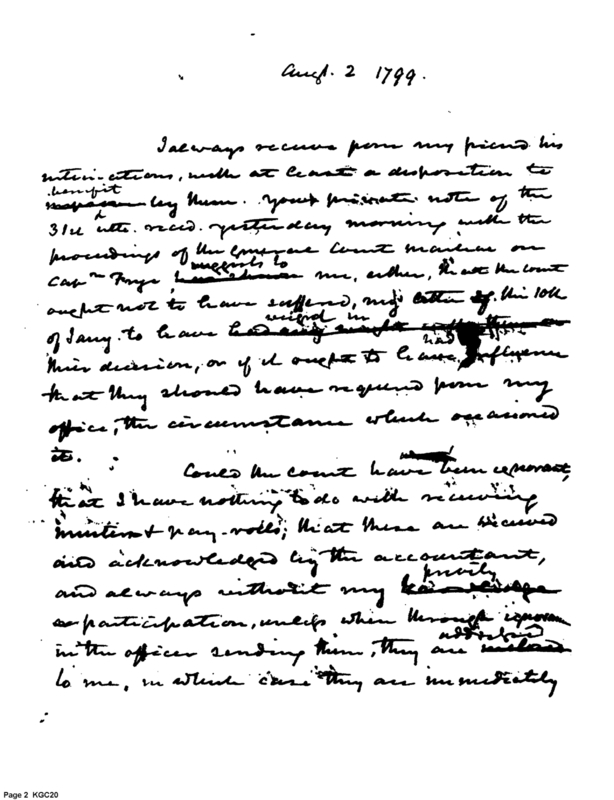 Augt. 2 1799.
I always receive from my friend his
intimations, with at least a disposition to
benefit
by them. Your private note of the
31st ulto. reced. yesterday morning with the
proceedings of the General Court martial on
suggests to
Capn Frye me, either, that the Court
ought not to have suffered, my letter of the 10th
weighed in
of Jany. to have had any weight
had
their decision, or if it ought to have influence
that they should have required from my
office, the circumstance which occasioned
it.
Could the Court have been ignorant,
that I have nothing to do with receiving
musters & pay-rolls; that these are received
and acknowledged by the accountant,
privity
and always without my knowledge
or participation, unless when through ignorance
addressed
in the officer sending them, they are inclosed
to me, in which case they are immediately
Page 2 KGC20